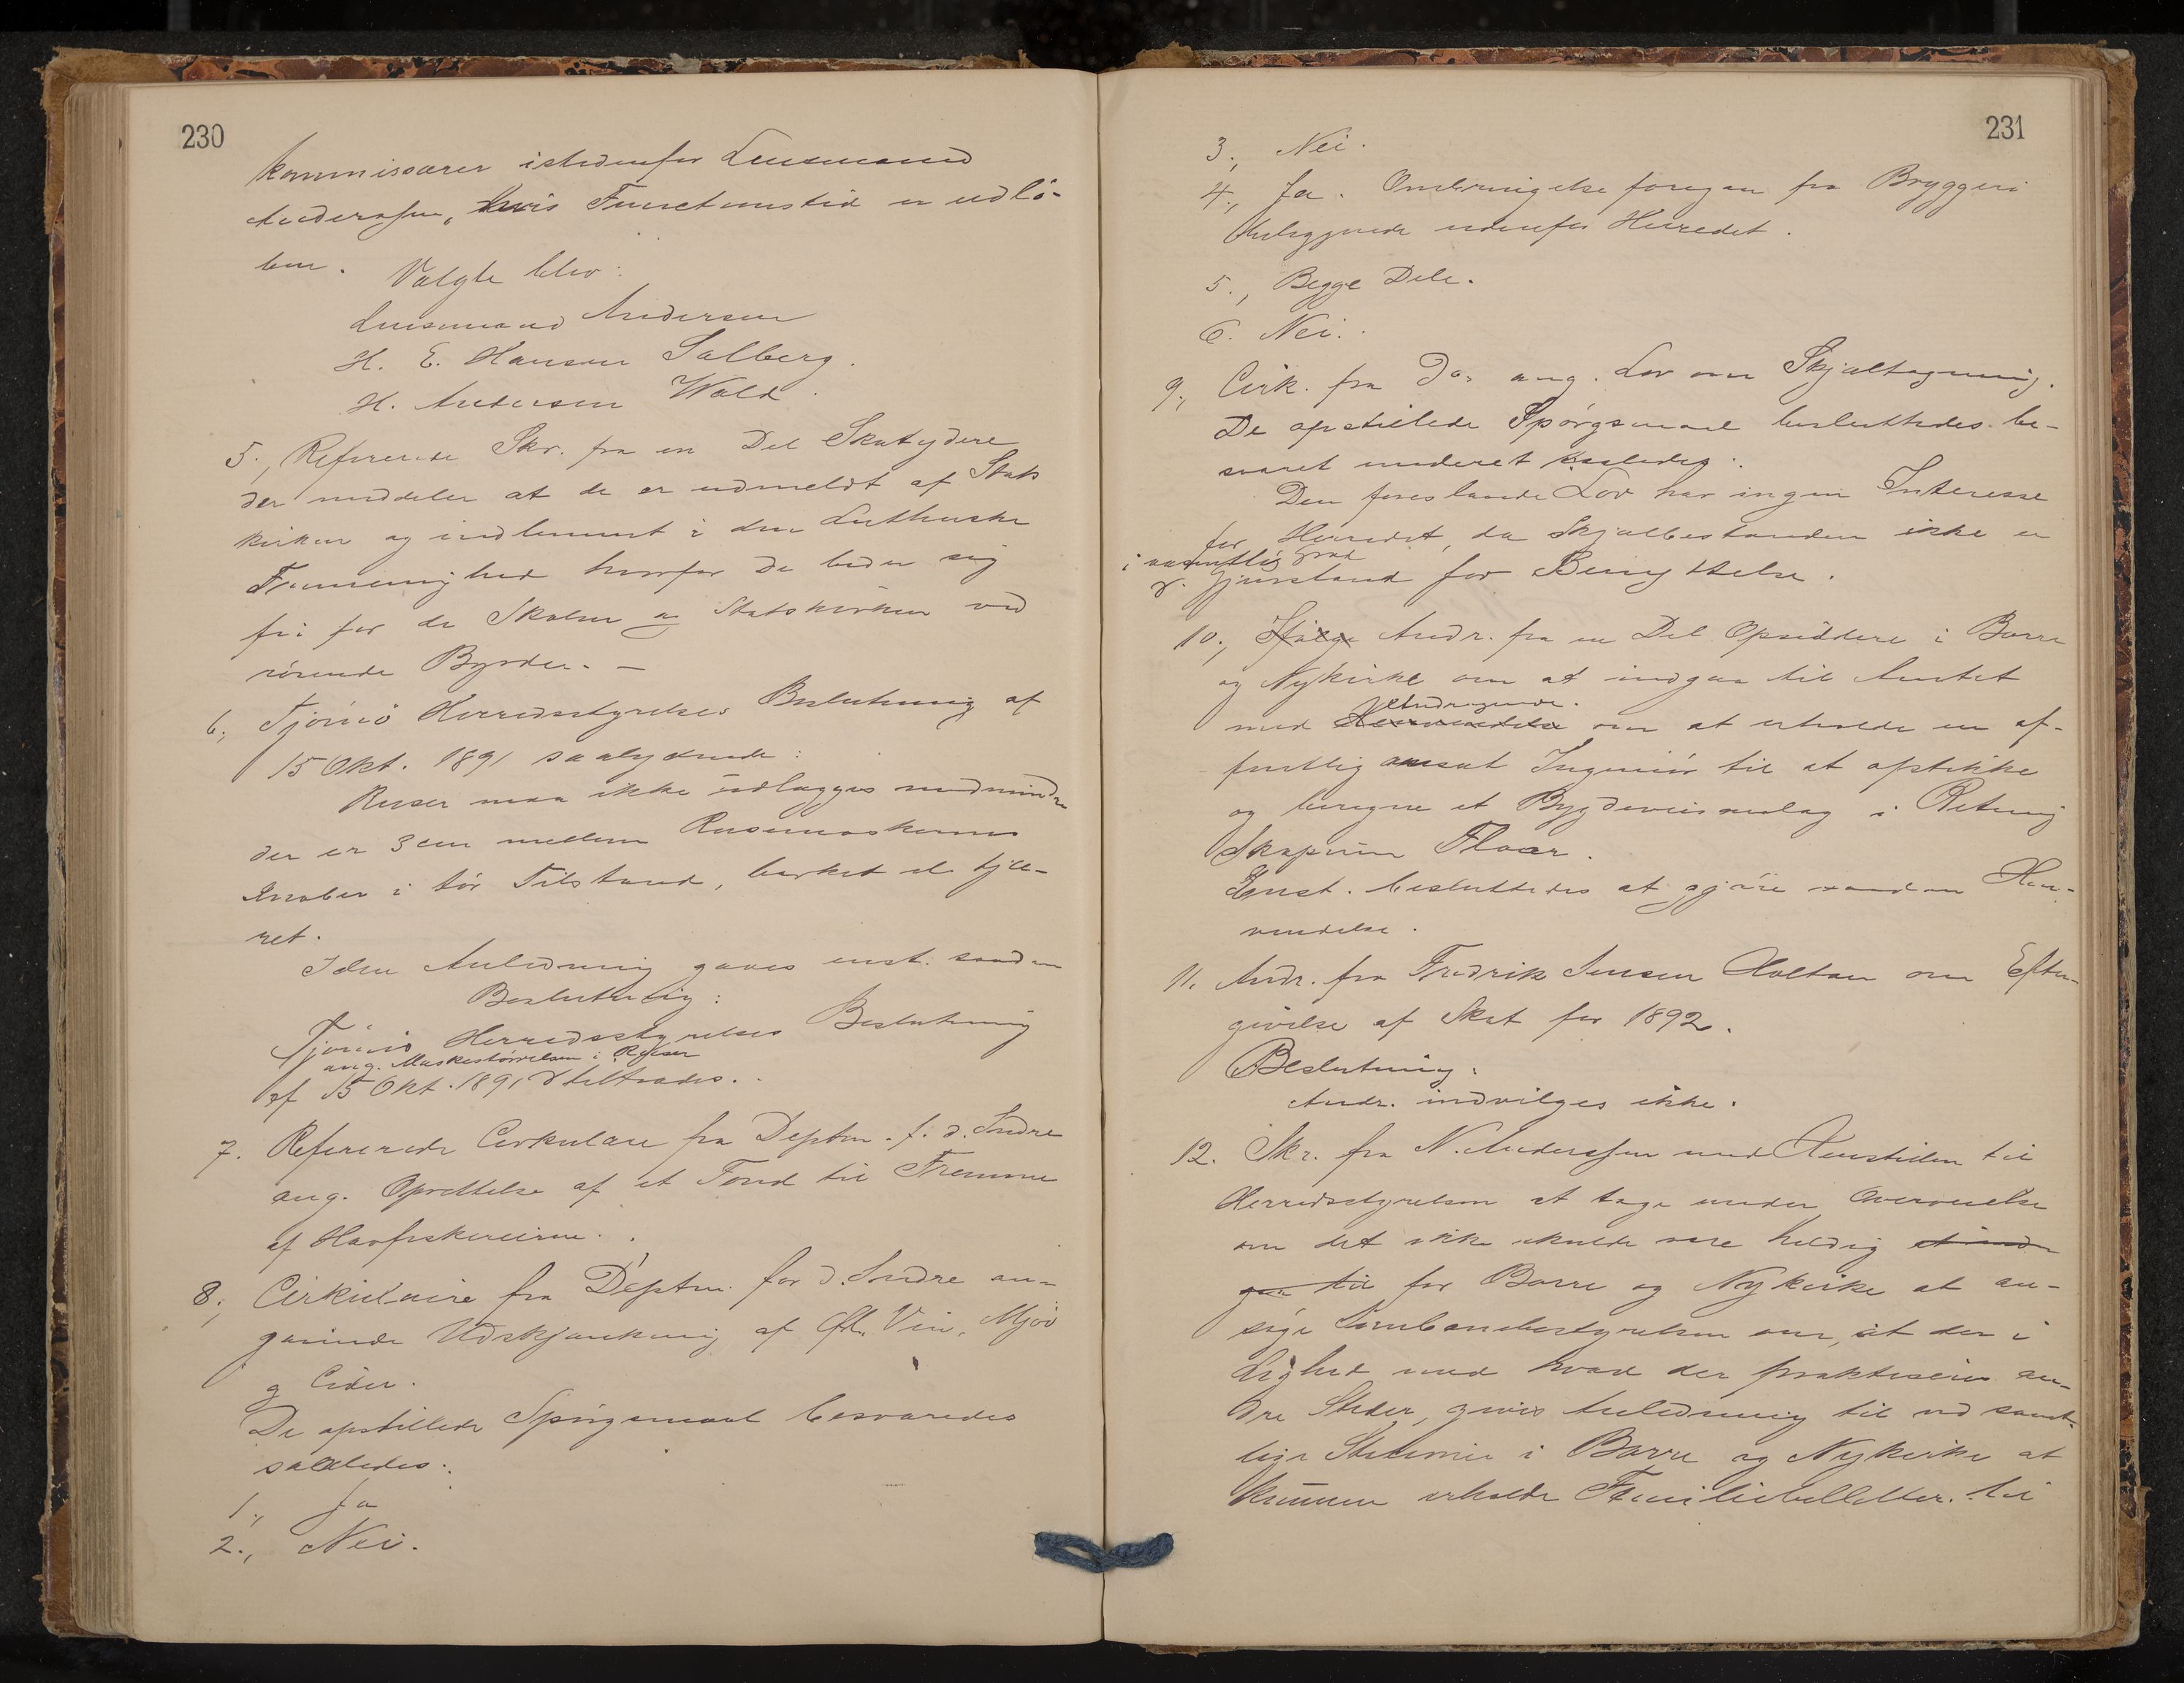 230
kommissærer istedenfor Lensmand
Anderssen, hvis Functionstid er udlö-
ben.
Valgte blev:
Lensmand Andersen
H. E. Hansen Solberg.
H. Andersen Wold.
5., Refererede Skr. fra en Del Skatydere
der meddeler at de er udmeldt af Stats
kirken og indlemmet i den Lutherske
Frimenighed hvorfor de beder sig
fri for de Skolen og Statskirken ved
rörende Byrder. —
6., Tjömö Herredsstyrelses Beslutning af
15 Okt. 1891 saalydende:
Ruser maa ikke udlægges medmindre
der er 3 cm mellem Rusemaskernes
Knober i tör Tilstand, barket el. tjæ-
ret.
I den Anledning gaves enst. saadan
Beslutning:
Tjömö Herredsstyrelses Beslutning
ang. Maskestörrelsen i Ruser
af 15 Okt. 1891 tiltrædes.
7. Refererede Cirkulære fra Deptm. f. d. Indre
ang. Oprettelse af et Fond til Fremme
af Havfiskerierne.
8., Cirkulaire fra Deptm. for d. Indre an-
gaaende Udskjænkning af Öl, Vin, Mjöd
og Cider.
De opstillede Spörgsmaal besvaredes
saaledes:
1., Ja
2., Nei.
231
3., Nei.
4., Ja. Ombringelse foregaar fra Bryggeri
beliggende udenfor Herredet.
5., Begge Dele.
6. Nei.
9., Cirk. fra Do. ang. Lov om Skjæltagning.
De opstillede Spörgsmaal besluttedes be-
svaret saaledes:
Den foreslaaede Lov har ingen Interesse
for Herredet, da Skjælbestanden ikke er
i væsentlig Grad
Gjenstand for Benyttelse.
10., Andr. fra en Del Opsiddere i Borre
og Nykirke om at indgaa til Amtet
Andragende
med Henvendelse om at erholde en of-
fentlig ansat Ingeniör til at opstikke
og beregne et Bygdeveisanlæg i Retning
Skopum Floer.
Enst. besluttedes at gjöre saadan Hen-
vendelse.
11. Andr. fra Fredrik Jensen Holtan om Efter-
givelse af Skat for 1892.
Beslutning:
Andr. indvilges ikke.
12. Skr. fra N. Anderssen med Henstillen til
Herredsstyrelsen at tage under Overveielse
om det ikke skulde være heldig at ind-
gaa til for Borre og Nykirke at an-
söge Jernbanebestyrelsen om, at der i
Lighed med hvad der praktiseres an-
dre Steder, gives Anledning til ved samt-
lige Stationer i Borre og Nykirke at
kunne erholde Familiebilletter til